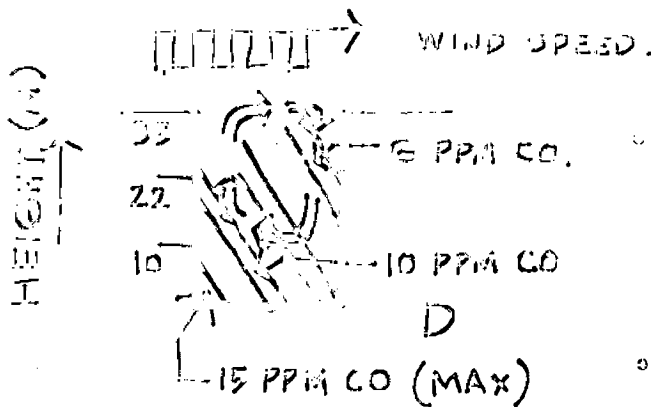 WIND SPEED.
HEIGHT (M)
33
6 PPM CO.
22
10
10 PPM CO
D
15 PPM CO (MAX)